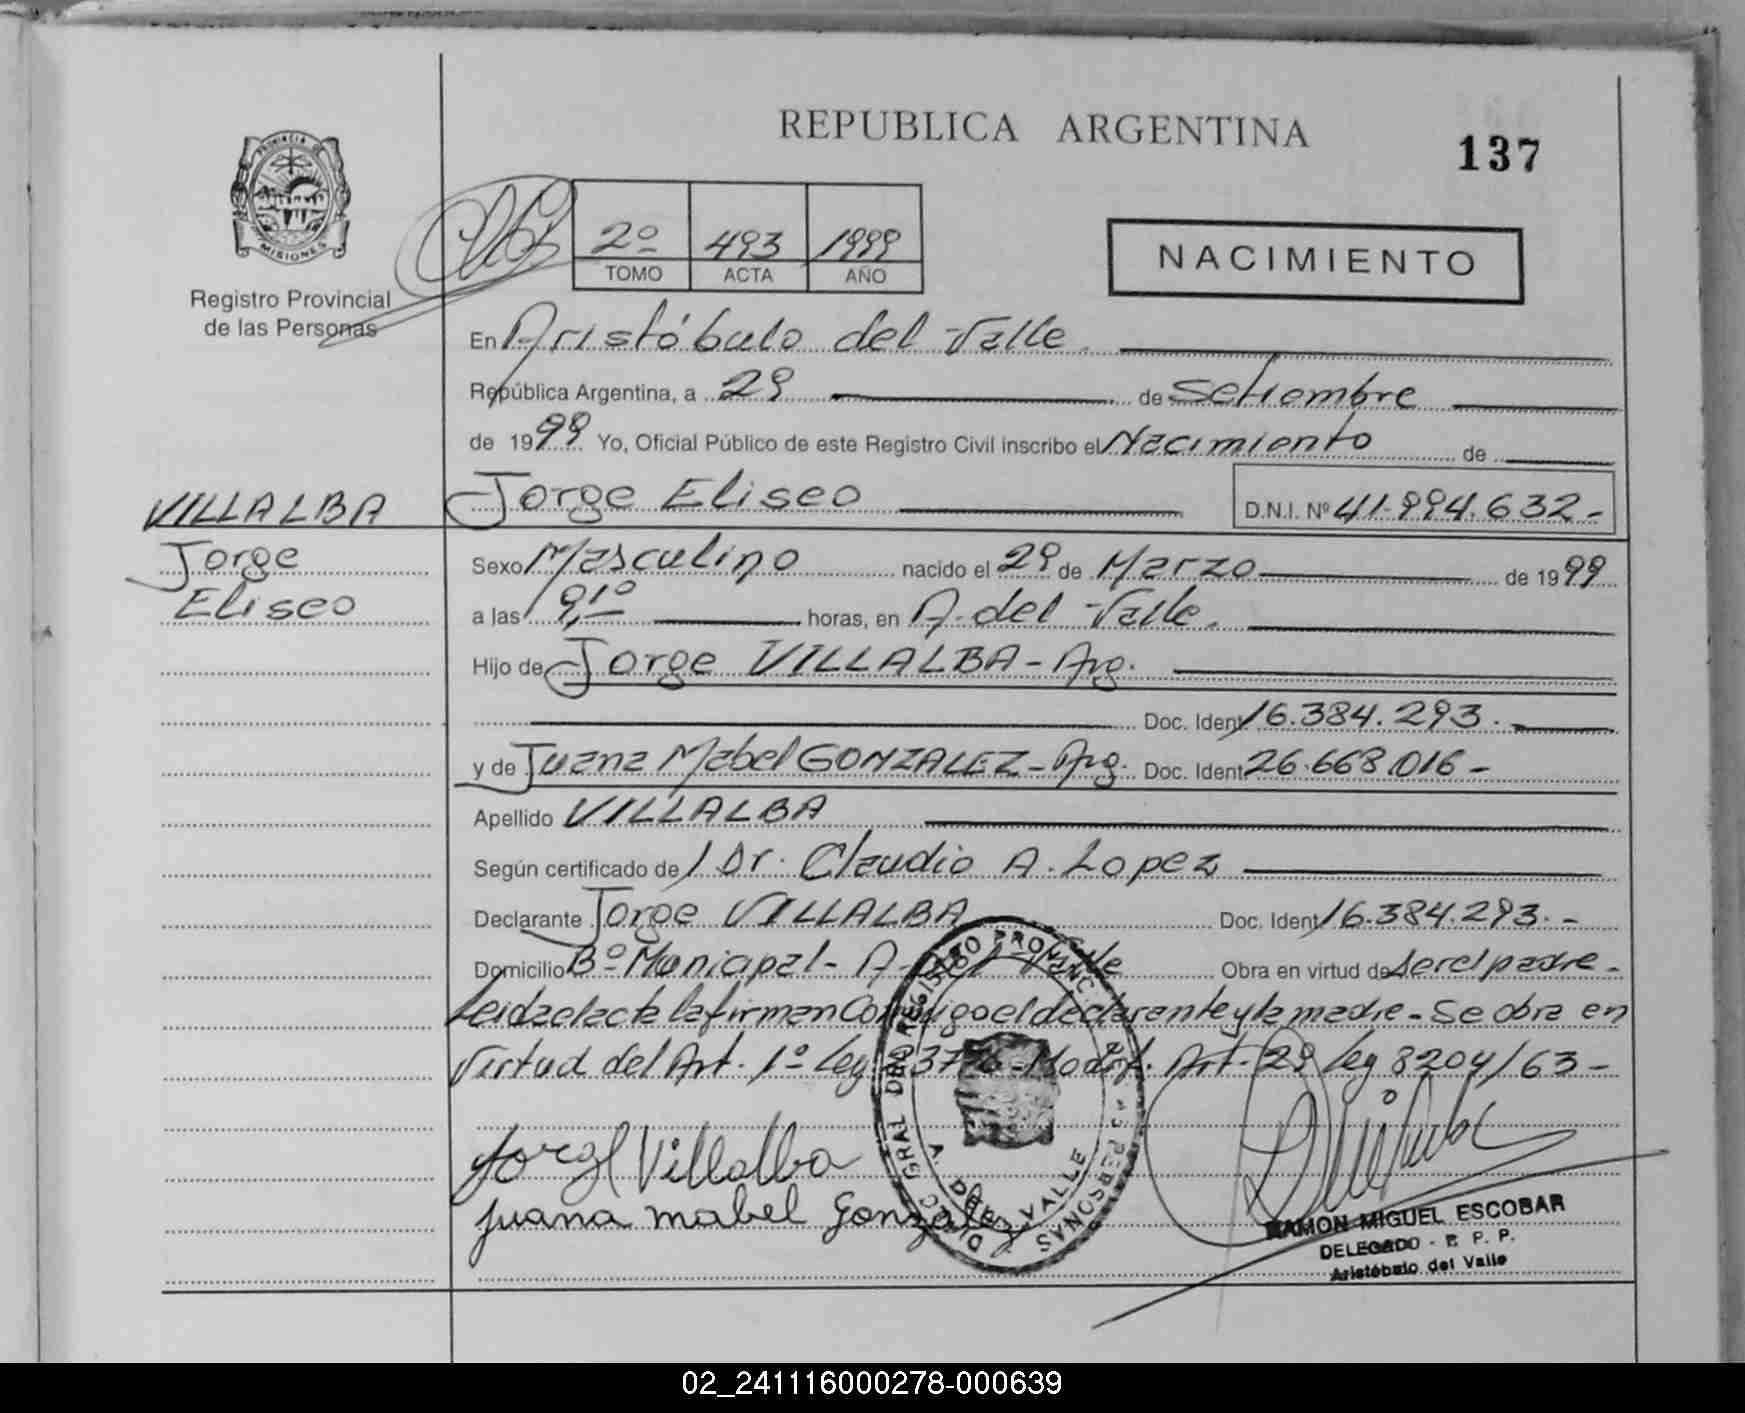 REPUBLICA ARGENTINA
137
PROVINCIA DE
MISIONES
Registro Provincial
de las Personas
2º 493 1999
TOMO ACTA AÑO
NACIMIENTO
En Aristóbulo del Valle.
República Argentina, a 29 de Setiembre
de 1999 Yo, Oficial Público de este Registro Civil inscribo el Nacimiento de
Jorge Eliseo D.N.I. Nº 41.994.632.-
VILLALBA
Jorge
Eliseo
Sexo Masculino nacido el 29 de Marzo de 1999
a las 9,10 horas, en A. del Valle.
Hijo de Jorge VILLALBA - Arg.
Doc. Ident 16.384.293.
y de Juana Mabel GONZALEZ - Arg. Doc. Ident 26.668.016 -
Apellido VILLALBA
Según certificado de / Dr. Claudio A. Lopez
Declarante Jorge VILLALBA Doc. Ident 16.384.293.-
Domicilio Bº Municipal - A. del Valle Obra en virtud de ser el padre.
Leida el acta la firman conmigo el declarante y la madre - Se obra en
virtud del Art. 1º Ley Modif. Art. 29 Ley 8204/63 -
Jorge Villalba
juana mabel Gonzalez
DIREC. GRAL DEL REGISTRO PROVINC. DE LAS PERSONAS
A. DEL VALLE
RAMON MIGUEL ESCOBAR
DELEGADO - R. P. P.
Aristóbulo del Valle
02_241116000278-000639